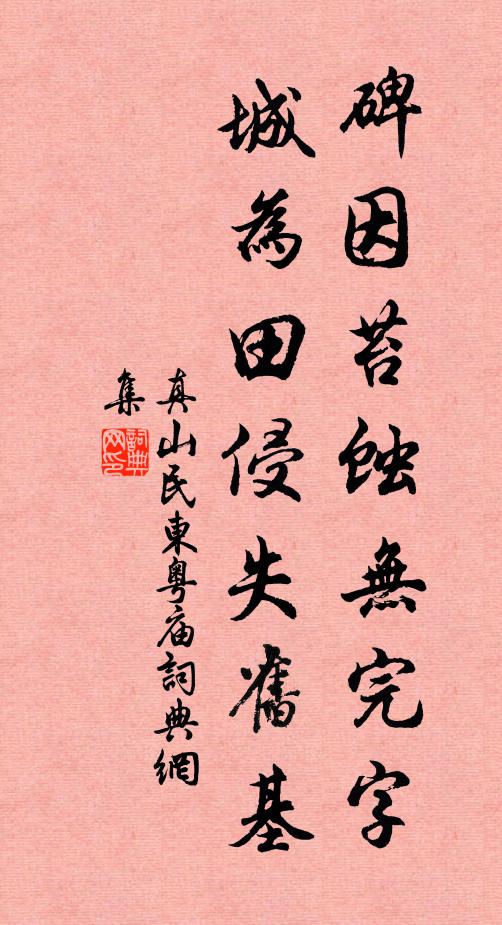 碑因苔蝕無完字
城為田侵失舊基
真山民東粵庙詞典網
集
詞典网印